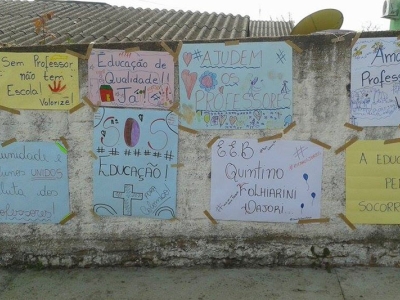 Sem Professor
não tem
Escola!
Valorize!
Educação de
Qualidade!!
Já!
#AJUDEM
OS
PROFESSORES
Ama
Professo
V
munidade e
unos UNIDOS
luta dos
ofessores
SOS
EDUCAÇÃO!
E.E.B
Quintino
Folhiarini
Dajori
A EDUCA
PE
SOCORR